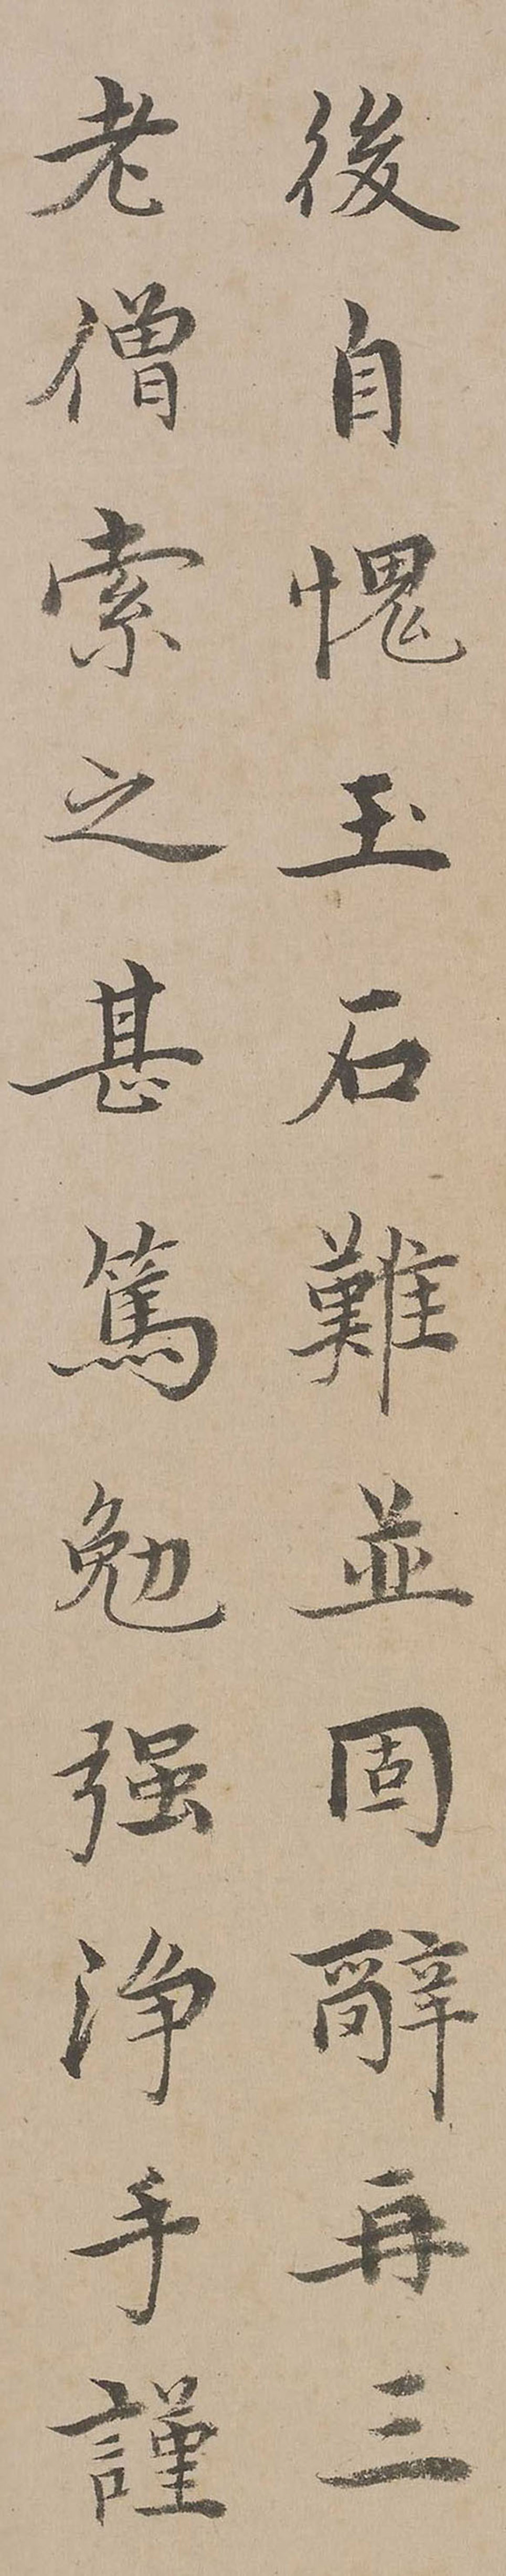 後自愧玉石難並固辭再三
老僧索之甚篤勉强淨手謹